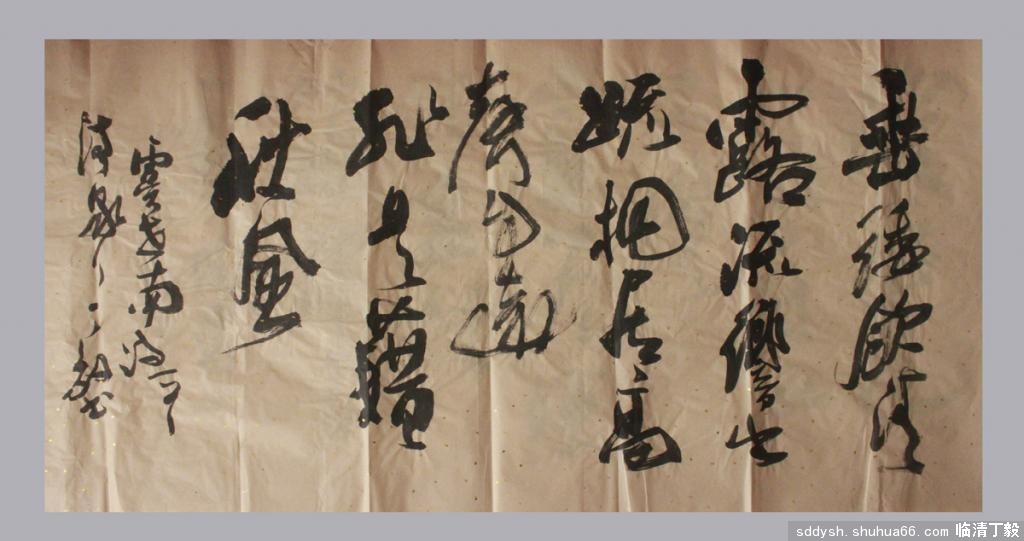 垂緌飲清
露流響出
疏桐居高
聲自遠
非是藉
秋風
虞世南
丁毅书
sddysh.shuhua66.com 临清丁毅